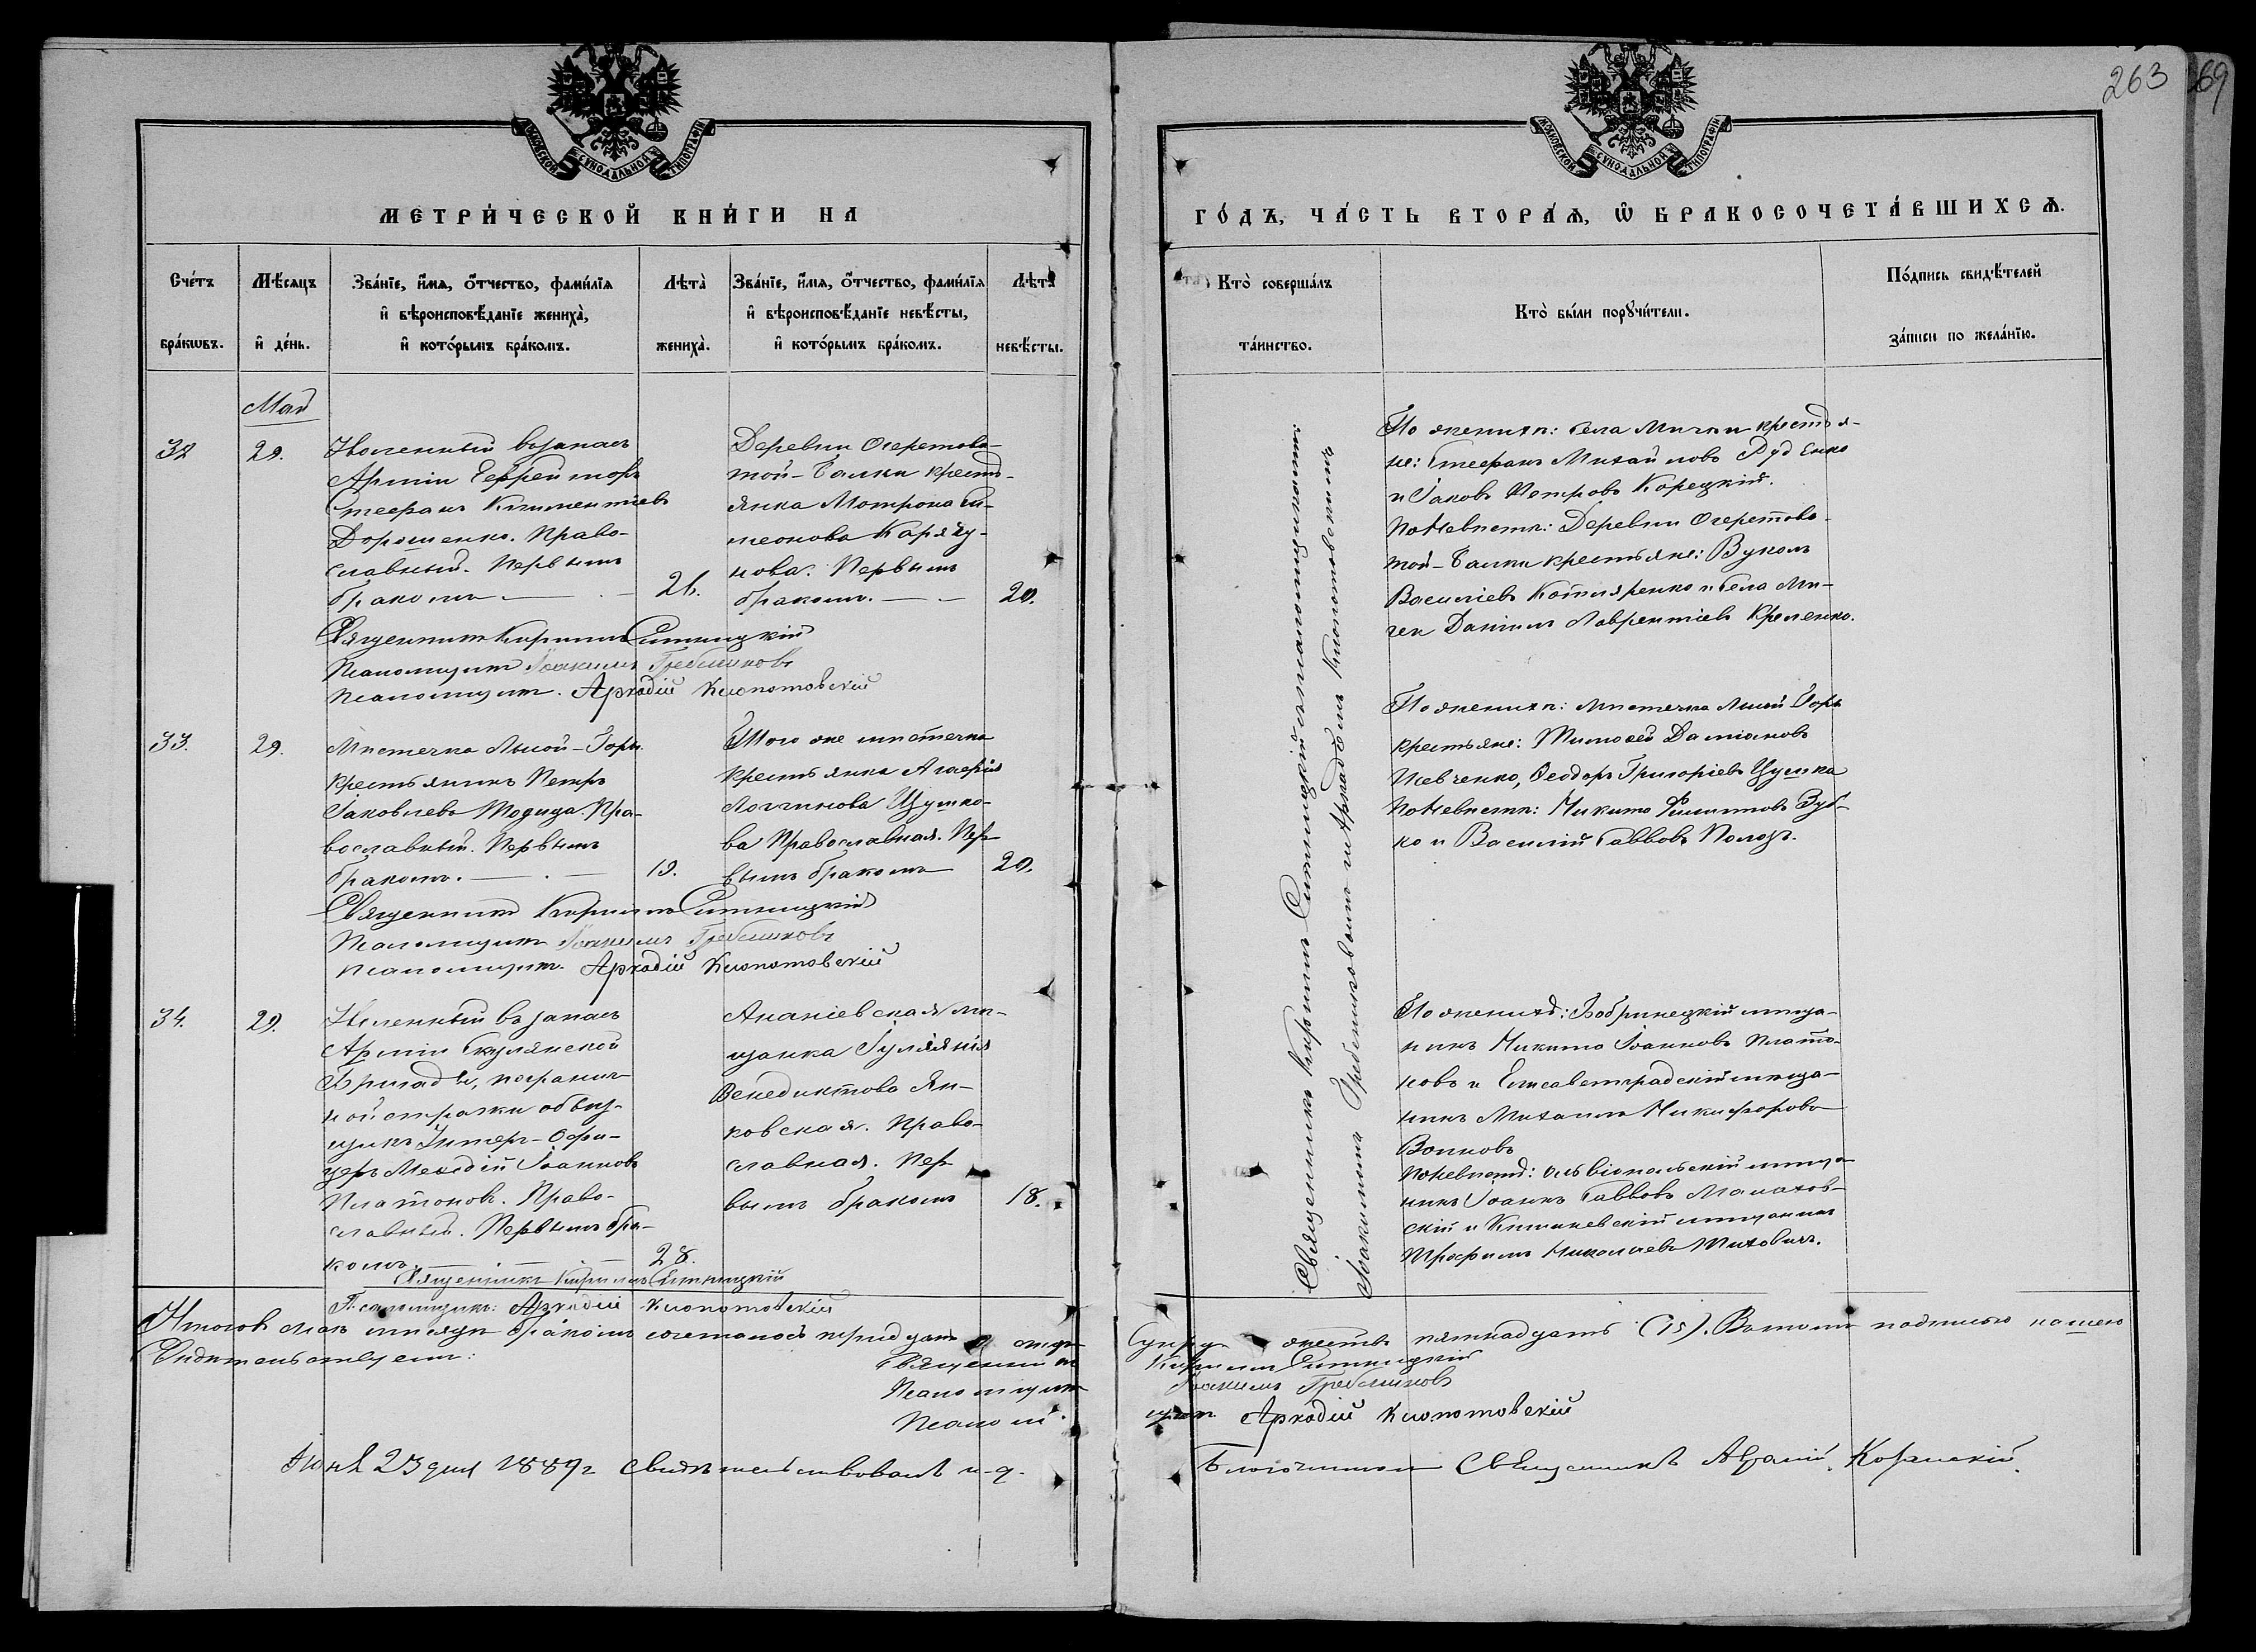 263
69
МОСКОВСКОЙ СУНОДАЛЬНОЙ ТИПОГРАФІИ
МОСКОВСКОЙ СУНОДАЛЬНОЙ ТИПОГРАФІИ
МЕТРИ́ЧЕСКОЙ КНИ́ГИ НА
ГО́ДЪ, ЧА́СТЬ ВТОРА́Ѧ, Ѡ БРАКОСОЧЕТА́ВШИХСѦ.
Сче́тъ бра́кѡвъ.
Мѣ́сяцъ и де́нь.
Зва́нїе, и́мѧ, о́тчество, фами́лїѧ
и вѣроисповѣ́данїе жениха̀,
и кото́рымъ бра́комъ.
Лѣта̀ жениха̀.
Зва́нїе, и́мѧ, о́тчество, фами́лїѧ
и вѣроисповѣ́данїе невѣ́сты,
и кото́рымъ бра́комъ.
Лѣта̀ невѣ́сты.
Кто̀ соверша́лъ
та́инство.
Кто̀ бы́ли порꙋчи́тели.
По́дпись свидѣ́телей
за́писи по жела́нїю.
Май
32
29.
Уволенный въ запасъ
Арміи Ефрейторъ
Стефанъ Климентіевъ
Дорошенко. Право-
славный. Первымъ
бракомъ
26.
Деревни Очеретова-
той-Балки кресть-
янка Мотрона Си-
меонова Карагу-
нова. Первымъ
бракомъ.
20.
По женихѣ: Села Мички крестья-
не: Стефанъ Михайловъ Руденко
и Іаковъ Петровъ Корецкій.
По Невѣстѣ: Деревни Очеретова-
той-Балки крестьяне: Вуколъ
Василіевъ Котляренко и Села Ми-
чек Даніилъ Лаврентіевъ Кременко.
Священникъ Кириллъ Ситницкій
Псаломщикъ Іоакимъ Гребенниковъ
Псаломщикъ. Аркадій Клопотовскій
33.
29.
Мѣстечка Лысой-Горы
крестьянинъ Петръ
Іаковлевъ Модица. Пра-
вославный. Первымъ
бракомъ.
19.
Того же мѣстечка
крестьянка Агафія
Логгинова Цушко-
ва Православная. Пер-
вымъ бракомъ
20.
По женихѣ: Мѣстечка Лысой Горы
крестьяне: Тимоѳей Даміановъ
Шевченко, Ѳеодоръ Григоріевъ Цушка
По Невѣстѣ: Никита Филипповъ Зуб-
ко и Василій Саввовъ Полозъ.
Священникъ Кириллъ Ситницкій
Псаломщикъ Іоакимъ Гребенниковъ
Псаломщикъ. Аркадій Клопотовскій
34.
29.
Уволенный въ запасъ
Арміи Скулянской
Бригады, погранич-
ной стражи объѣз-
щикъ Унтеръ-Офи-
церъ Меѳодій Іоанновъ
Платоновъ. Право-
славный. Первымъ бра-
комъ.
28.
Ананіевская мѣ-
щанка Іуліанія
Венедиктова Ян-
ковская. Право-
славная. Пер-
вымъ бракомъ
18.
По женихѣ: Бобринецкій мѣща-
нинъ Никита Іоанновъ Плато-
новъ и Елисаветградскій мѣща-
нинъ Михаилъ Никифоровъ
Волковъ
По Невѣстѣ: Ольвіопольскій мѣща-
нинъ Іоаннъ Саввовъ Малахов-
скій и Кишиневскій мѣщанинъ
Трофимъ Николаевъ Тиховичъ.
Священникъ Кириллъ Ситницкій
Псаломщикъ: Аркадій Клопотовскій
Священникъ Кириллъ Ситницкій съ псаломщиками:
Іоакимомъ Гребенниковымъ и Аркадіемъ Клопотовскимъ
Итого въ Маѣ мѣсяцѣ бракомъ сочеталось тридцать супружествъ пятнадцать (15). Въ томъ подписью нашею
Свидѣтельствуемъ: Священникъ Кириллъ Ситницкій
Псаломщикъ Іоакимъ Гребенниковъ
Псаломщикъ Аркадій Клопотовскій
Іюня 23 дня 1889 г свидѣтельствовалъ и. д. Благочиннаго Священникъ Козанскій